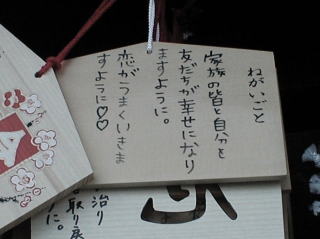 ねがいごと
家族の皆と自分を
友だちが幸せになり
ますように。
恋がうまくいきま
すように♡♡
治り
取り戻
に。